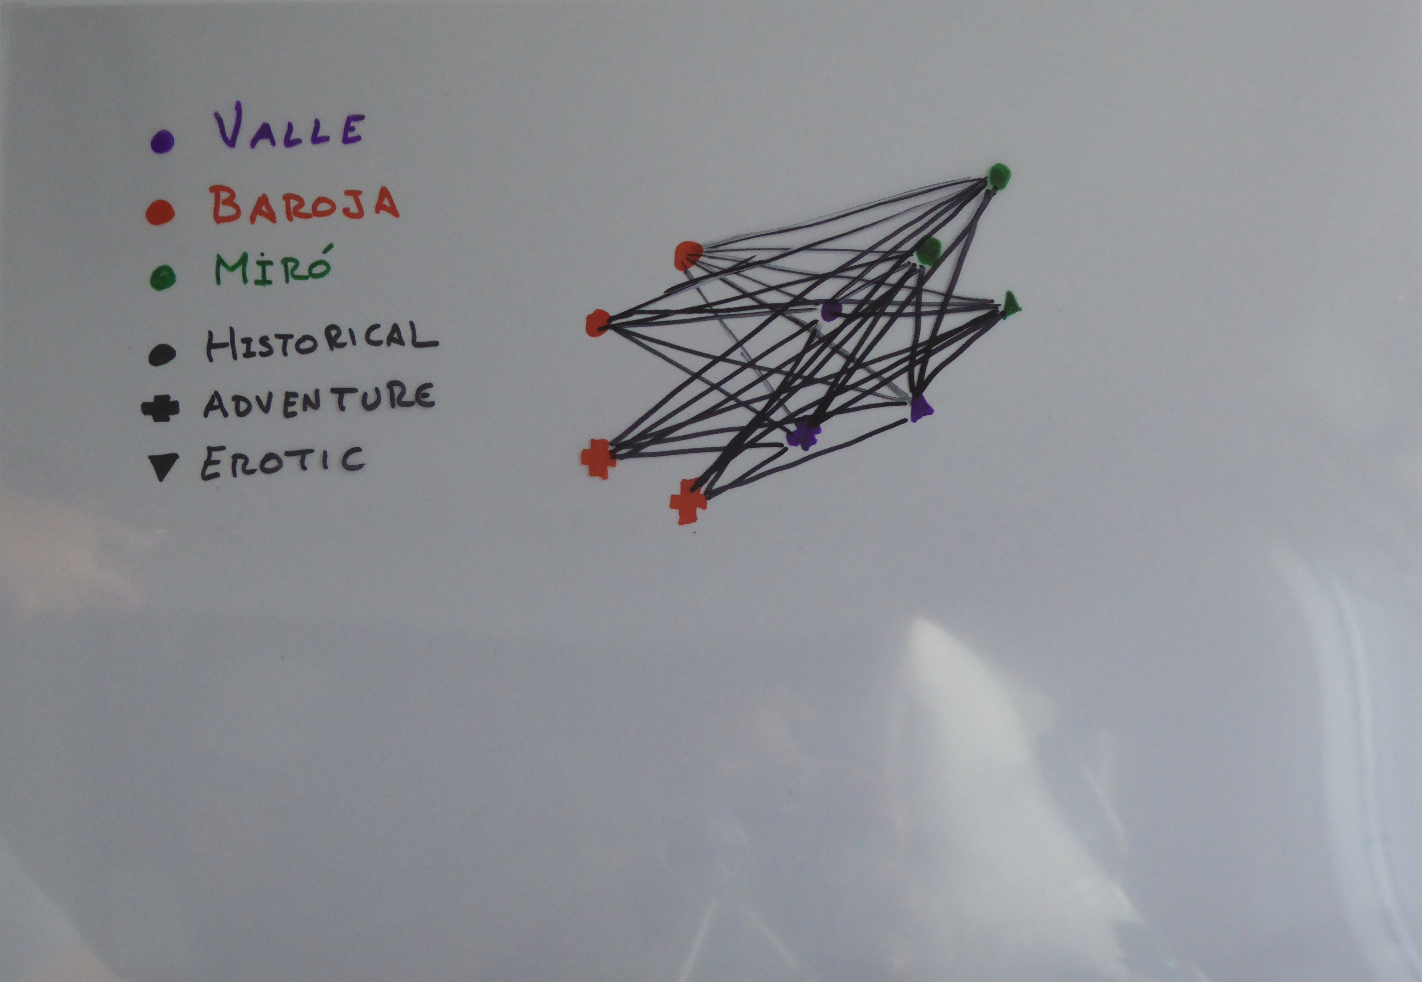 VALLE
BAROJA
MIRÓ
HISTORICAL
ADVENTURE
EROTIC